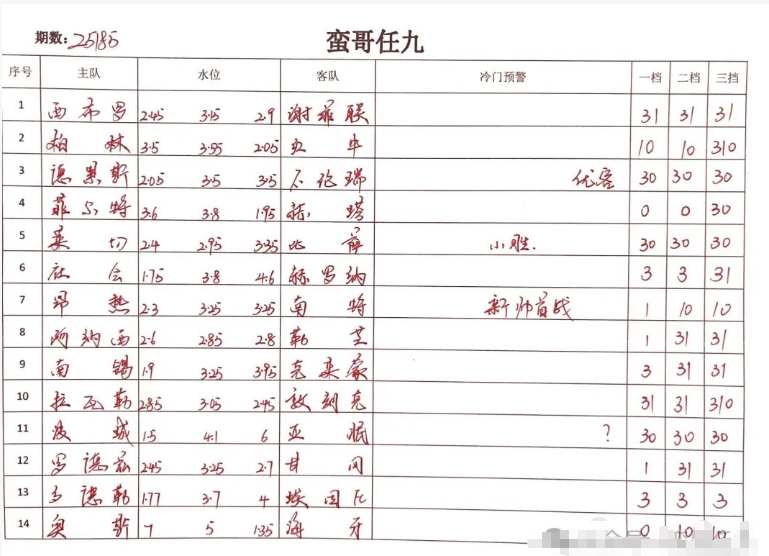 期数: 25185 蛮哥任九
序号 主队 水位 客队 冷门预警 一档 二档 三挡
1 西布罗 2.45 3.15 2.9 谢菲联 31 31 31
2 柏林 3.5 3.55 2.05 红牛 10 10 310
3 德累斯 2.05 3.5 3.5 不伦瑞 优客 30 30 30
4 菲尔特 3.6 3.8 1.95 赫塔 0 0 30
5 莱切 2.4 2.95 3.35 比萨 小胜. 30 30 30
6 社会 1.75 3.8 4.6 赫罗纳 3 3 31
7 昂热 2.3 3.25 3.25 南特 新帅首战 1 10 10
8 阿纳西 2.6 2.85 2.8 勒芒 1 31 31
9 南锡 1.9 3.25 3.95 克莱蒙 3 31 31
10 拉瓦勒 2.85 3.05 2.45 敦刻克 31 31 310
11 波城 1.5 4.1 6 亚眠 ? 30 30 30
12 罗德兹 2.45 3.25 2.7 甘冈 1 31 31
13 乌德勒 1.77 3.7 4 埃因 3 3 3
14 奥斯 7 5 1.35 海牙 0 10 10